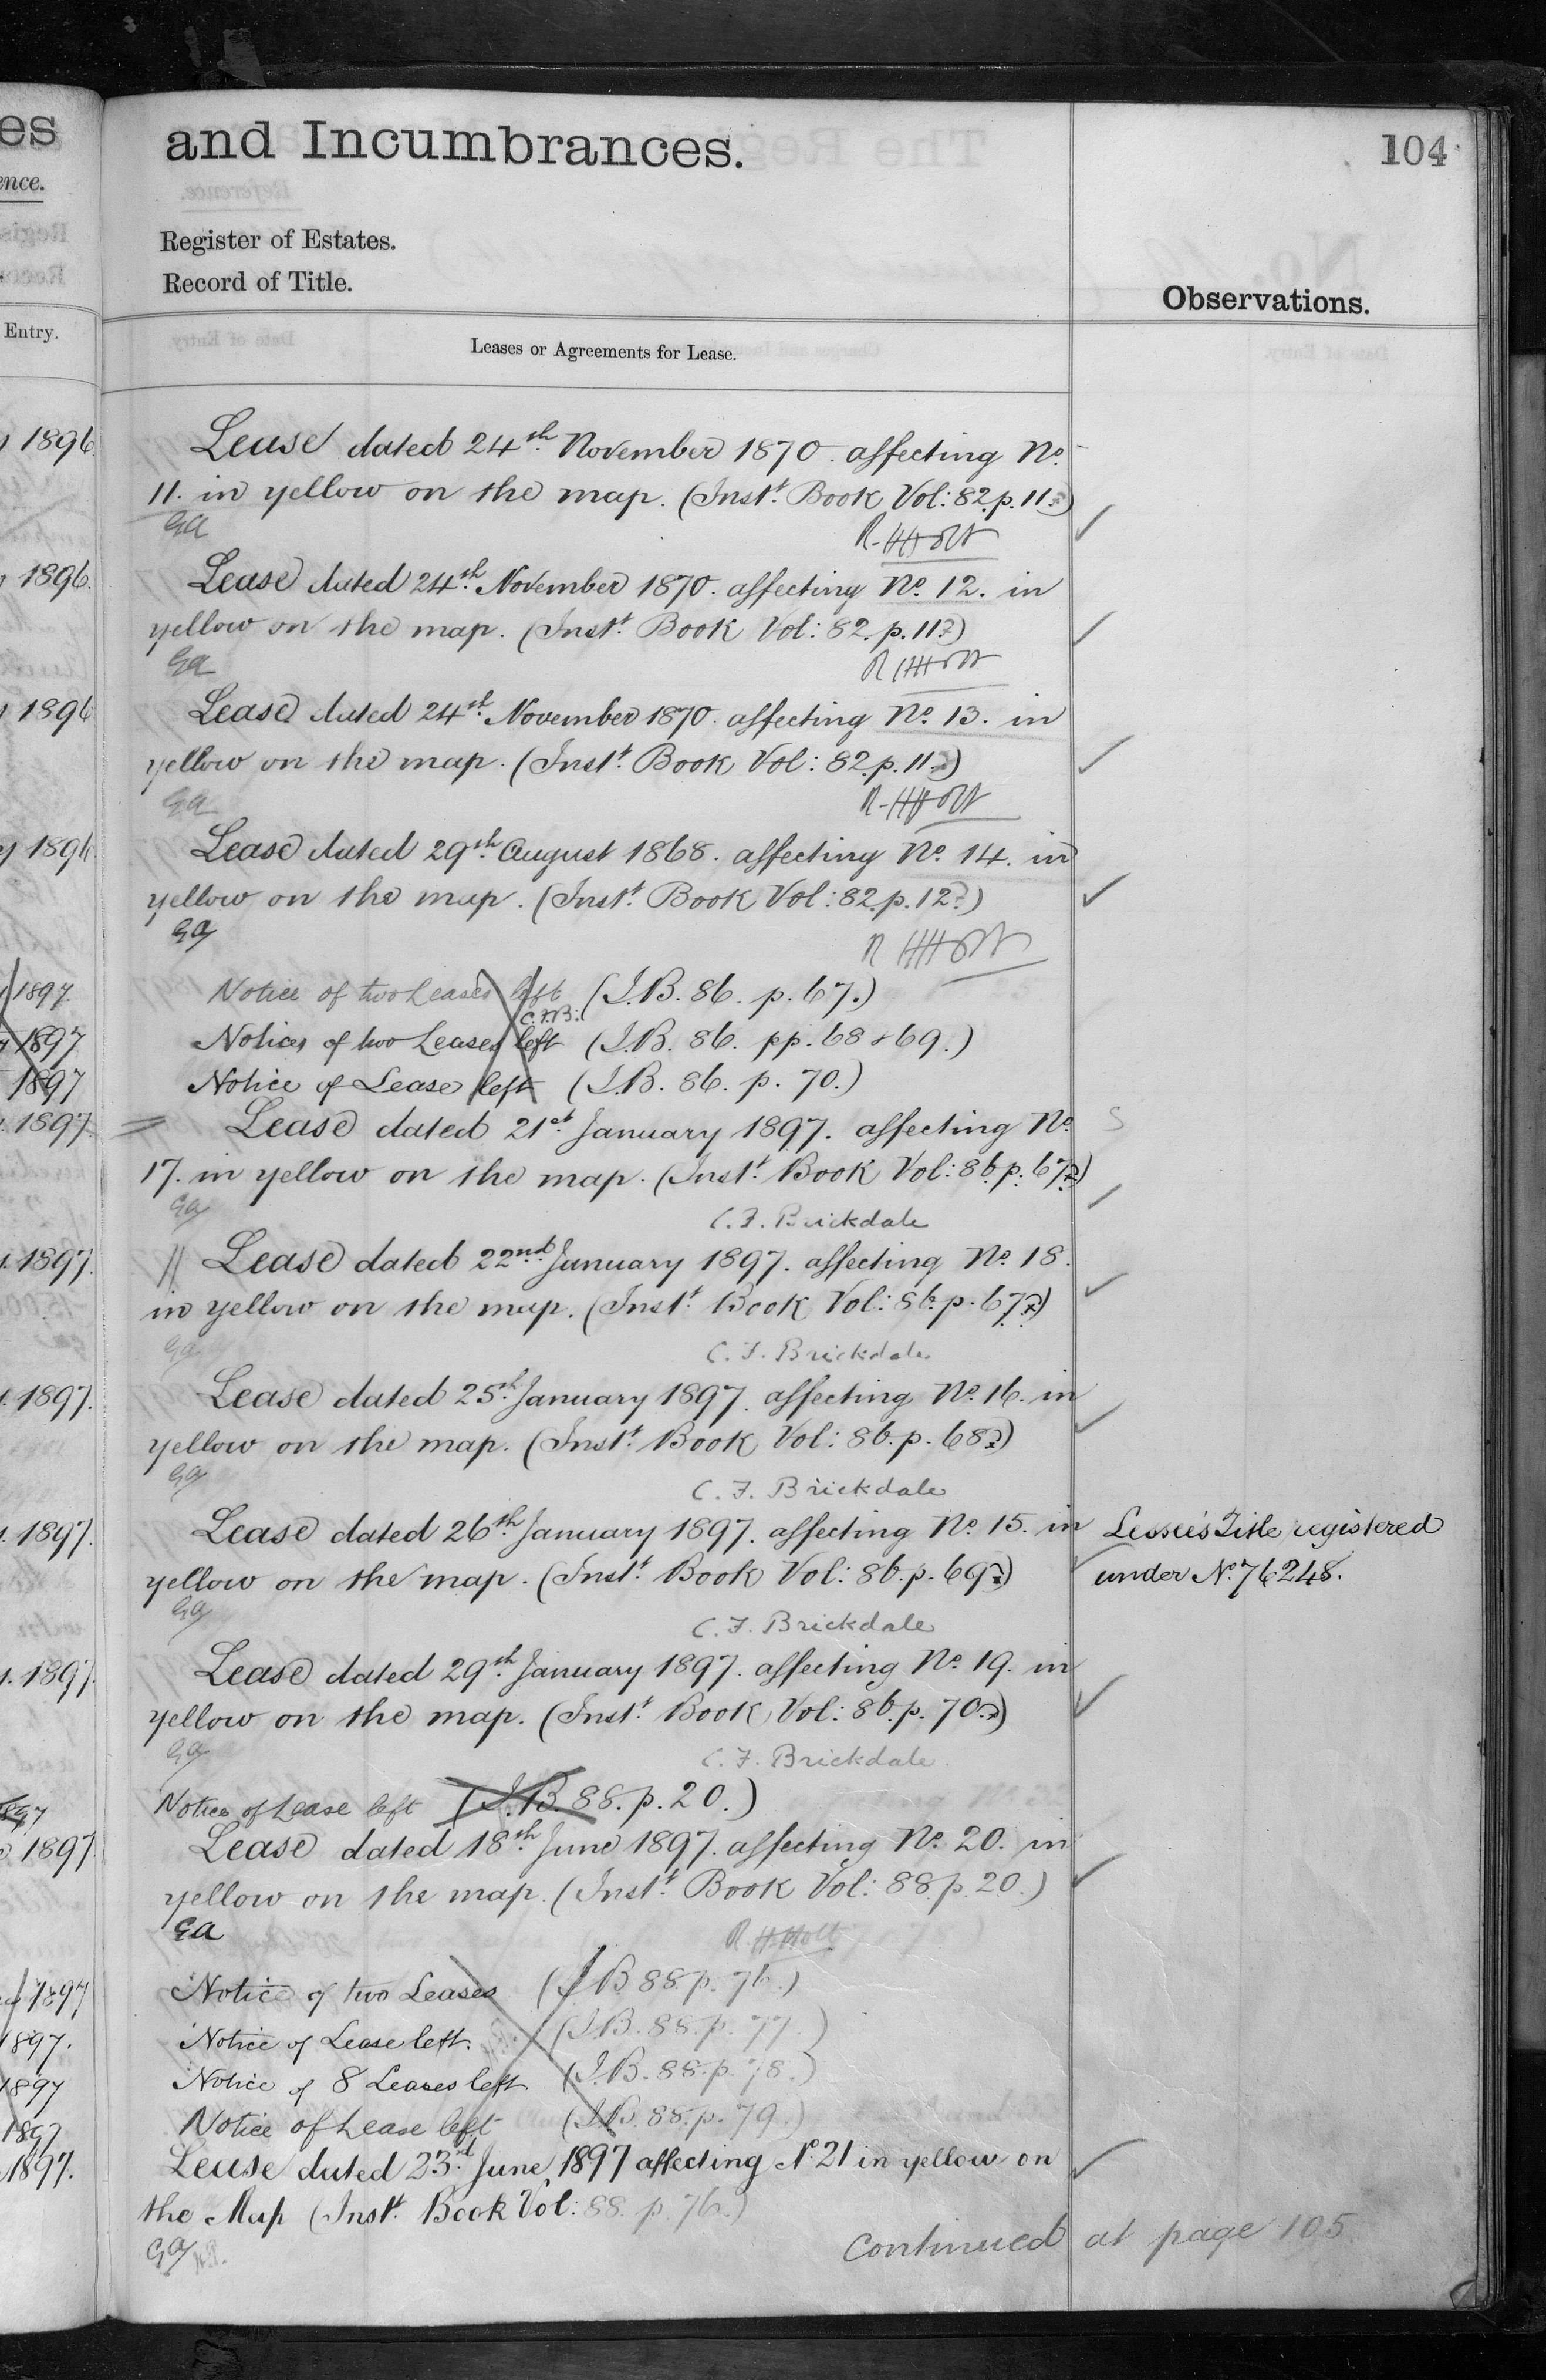 es
and Incumbrances.
104
ence.
Register of Estates.
Record of Title.
Observations.
Entry.
Leases or Agreements for Lease.
1896
Lease dated 24th November 1870 affecting No.
11. in yellow on the map. (Inst. Book Vol: 82. p. 11.)
Ga
R. H. Holt
1896.
Lease dated 24th November 1870. affecting No. 12. in
yellow on the map. (Inst. Book Vol: 82. p. 11.)
Ga
R H Holt
1896
Lease dated 24th November 1870. affecting No. 13. in
yellow on the map. (Inst. Book Vol: 82. p. 11.)
Ga
R. H. Holt
1896
Lease dated 29th August 1868. affecting No. 14. in
yellow on the map. (Inst. Book Vol: 82. p. 12.)
Ga
R H Holt
1897.
Notice of two Leases left (I.B. 86. p. 67.)
C.F.B.
1897
Notices of two Leases left (I.B. 86. pp. 68 & 69.)
1897
Notice of Lease left (I.B. 86. p. 70.)
1897.
Lease dated 21st January 1897. affecting No.
17. in yellow on the map. (Inst. Book Vol: 86. p. 67.)
Ga
C. F. Brickdale
1897.
Lease dated 22nd January 1897. affecting No. 18.
in yellow on the map. (Inst. Book Vol: 86. p. 67.)
Ga
C. F. Brickdale
1897.
Lease dated 25th January 1897. affecting No. 16. in
yellow on the map. (Inst. Book Vol: 86. p. 68.)
Ga
C. F. Brickdale
1897.
Lease dated 26th January 1897. affecting No. 15. in
Lessee's Title registered
yellow on the map. (Inst. Book Vol: 86. p. 69.)
under No. 76248.
Ga
C. F. Brickdale
1897.
Lease dated 29th January 1897. affecting No. 19. in
yellow on the map. (Inst. Book Vol: 86. p. 70.)
Ga
C. F. Brickdale
1897
Notice of Lease left (I.B. 88. p. 20.)
1897.
Lease dated 18th June 1897. affecting No. 20. in
yellow on the map. (Inst. Book Vol: 88. p. 20.)
Ga
R. H. Holt
1897
Notice of two Leases (I B 88. p. 76.)
1897.
Notice of Lease left. (I.B. 88. p. 77.)
1897
Notice of 8 Leases left. (I.B. 88. p. 78.)
1897
Notice of Lease left (I.B. 88. p. 79.)
1897.
Lease dated 23rd June 1897 affecting No. 21 in yellow on
the Map (Inst. Book Vol: 88. p. 76.)
Ga
Continued at page 105